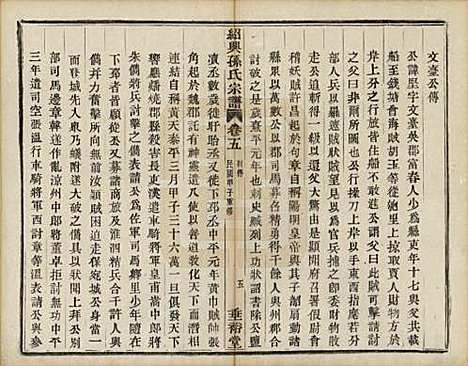 文臺公傳
公諱堅字文臺吳郡富春人少為縣吏年十七與父共載
船至錢塘會海賊胡玉等從匏里上掠取賈人財物方於
岸上分之行旅皆住船不敢進公謂父曰此賊可擊請討
之父曰非爾所圖也公行操刀上岸以手東西指麾若分
部人兵以羅遮賊狀賊望見以為官兵捕之即委財物散
走公追斬得一級以還父大驚由是顯聞府召署假尉會
稽妖賊許昌起於句章自稱陽明皇帝與其子韶扇動諸縣
眾以萬數公以郡司馬募召精勇得千餘人與州郡合
討破之是歲熹平元年也刺史臧旻列上功狀詔書除公鹽
紹興孫氏宗譜 卷五 列傳 民國甲子重修 五 垂裕堂
瀆丞數歲徙盱眙丞又徙下邳丞中平元年黃巾賊帥張
角起於魏郡託有神靈遣八使以善道教化天下而潛相
連結自稱黃天泰平三月甲子三十六萬一旦俱發天下
響應燔燒郡縣殺害長吏漢遣車騎將軍皇甫嵩中郎將
朱儁將兵討擊之儁表請公為佐軍司馬鄉里少年隨在
下邳者皆願從公又募諸商旅及淮泗精兵合千許人與
儁并力奮擊所向無前汝潁賊困迫走保宛城公身當一
面登城先入眾乃蟻附遂大破之儁具以狀聞上拜公別
部司馬邊章韓遂作亂涼州中郎將董卓拒討無功中平
三年遣司空張溫行車騎將軍西討章等溫表請公與參